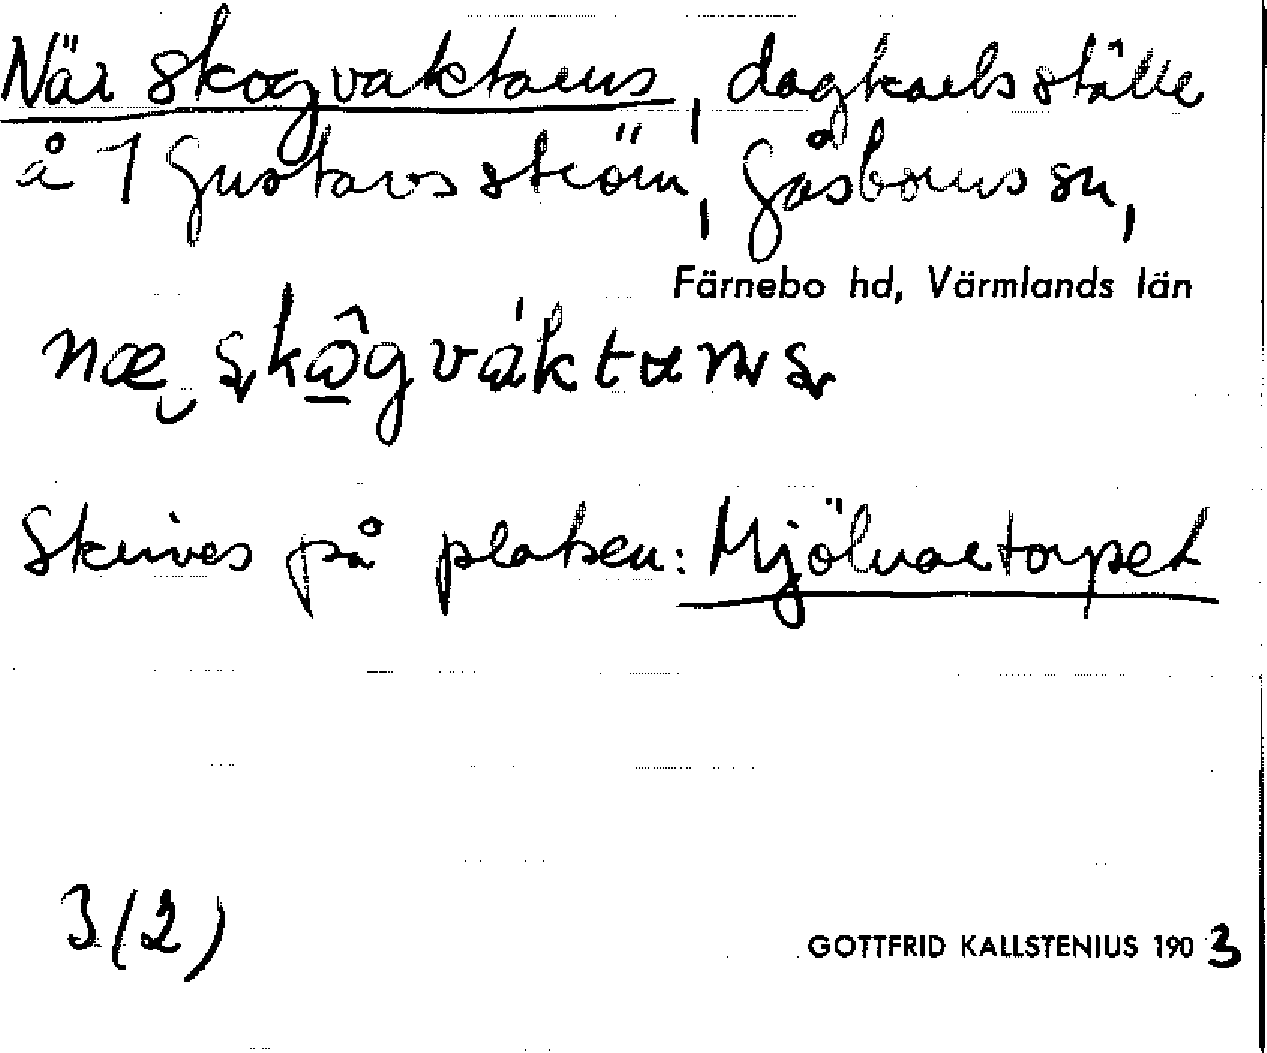 När skogvaktarns, dagkarlsställe
å 1 Gustavsström, Gåsborns sn,
Färnebo hd, Värmlands län
Skrives på platsen: Mjölnartorpet
3(2)
GOTTFRID KALLSTENIUS 1903